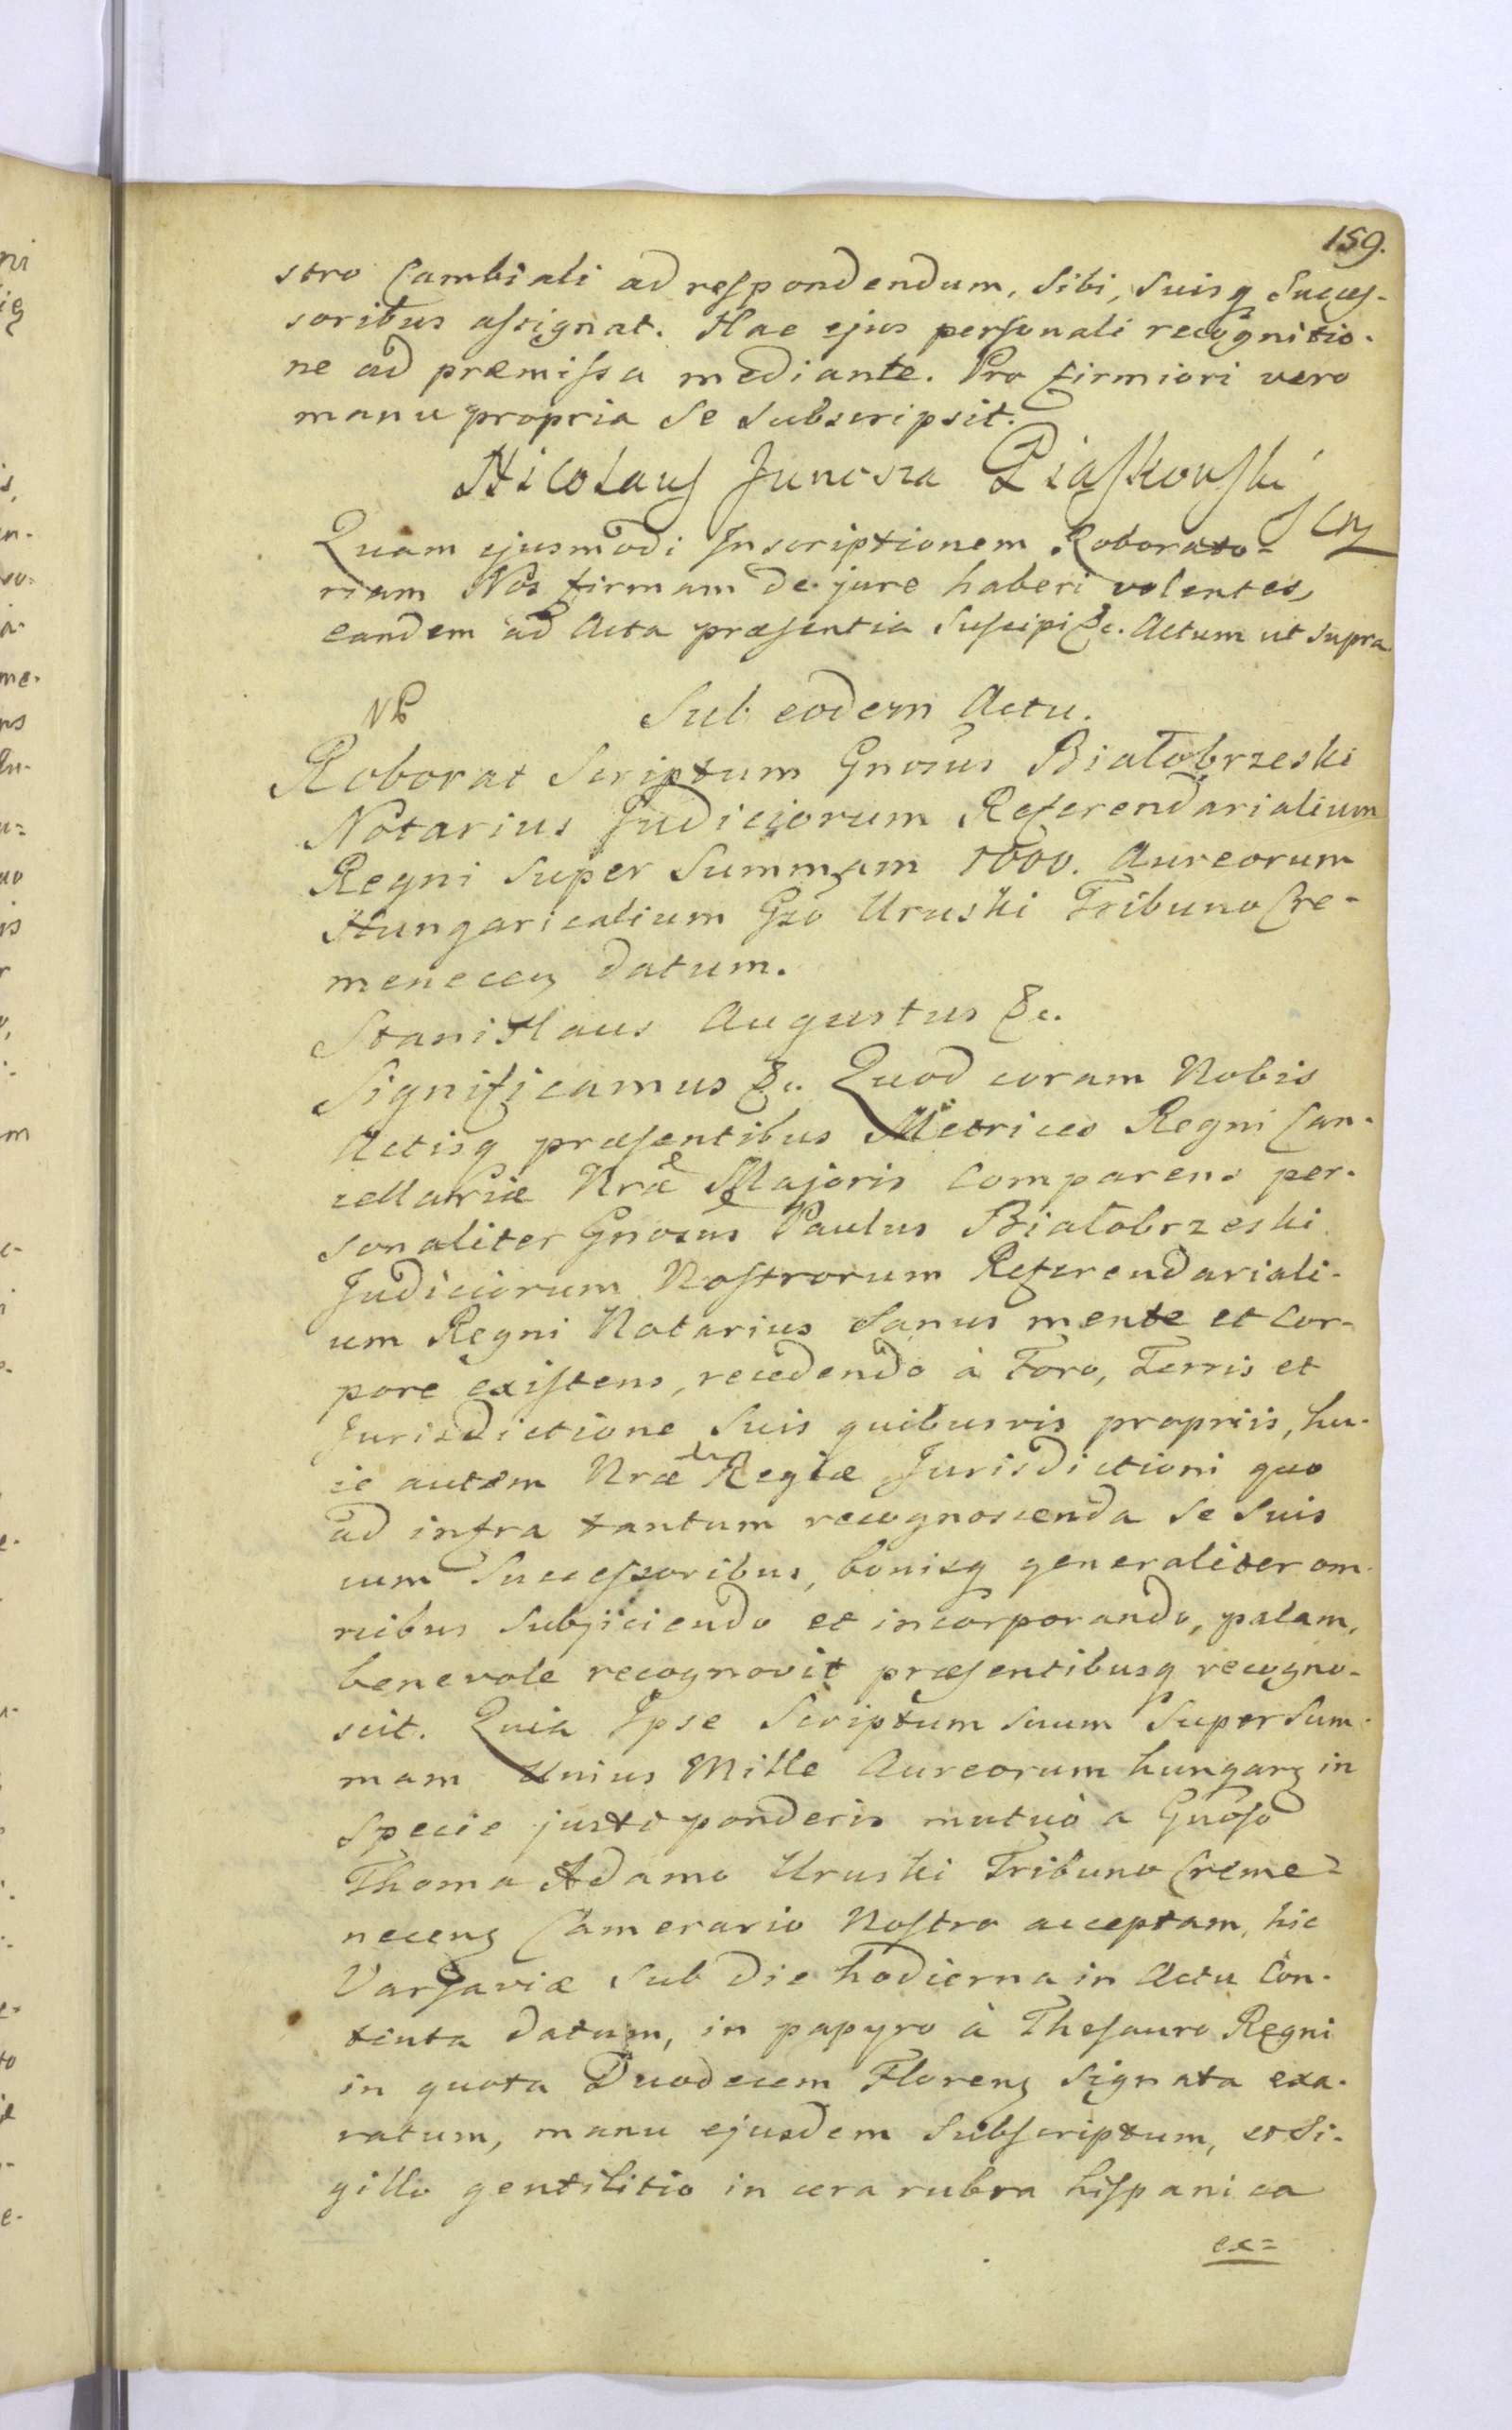 159.
stro Cambiali ad respondendum, Sibi, Suisq Succes-
soribus assignat. Hac ejus personali recognitio-
ne ad præmissa mediante. Pro firmiori vero
manu propria se subscripsit.
Nicolaus Junosza Piaskowski
Quam ejusmodi Inscriptionem Roborato-
riam Nos firmam de jure haberi volentes,
eandem ad Acta præsentia Suscipi &c. Actum ut supra
NB
Sub eodem Actu.
Roborat Scriptum Gnosus Białobrzeski
Notarius Judiciorum Referendarialium
Regni Super Summam 1000. Aureorum
Hungaricalium Gso Uruski Tribuno Cre-
menecen datum.
Stanislaus Augustus &c.
Significamus &c. Quod coram Nobis
Actisq præsentibus Metrices Regni Can-
cellariæ Nræ Majoris Comparens per-
sonaliter Gnosus Paulus Białobrzeski
Judiciorum Nostrorum Referendariali-
um Regni Notarius Sanus mente et Cor-
pore existens, recedendo à Foro, Terris et
Jurisdictione Suis quibusvis propriis, hu-
ic autem Nræ Regiæ Jurisdictioni quo
ad infra tantum recognoscenda Se Suis
cum Successoribus, bonisq generaliter om-
nibus Subjiciendo et incorporando, palam,
benevole recognovit præsentibusq recogno-
scit. Quia Ipse Scriptum suum Super Sum-
mam Unius Mille Aureorum hungar in
Specie justi ponderis mutuò a Gnoso
Thoma Adamo Uruski Tribuno Creme-
necens Camerario Nostro acceptam, hic
Varsaviæ Sub die hodierna in Actu Con-
tenta datum, in papyro à Thesauro Regni
in quota Duodecem Floren Signata exa-
ratum, manu ejusdem Subscriptum, et Si-
gillo gentilitio in cera rubra hispanica
ex=